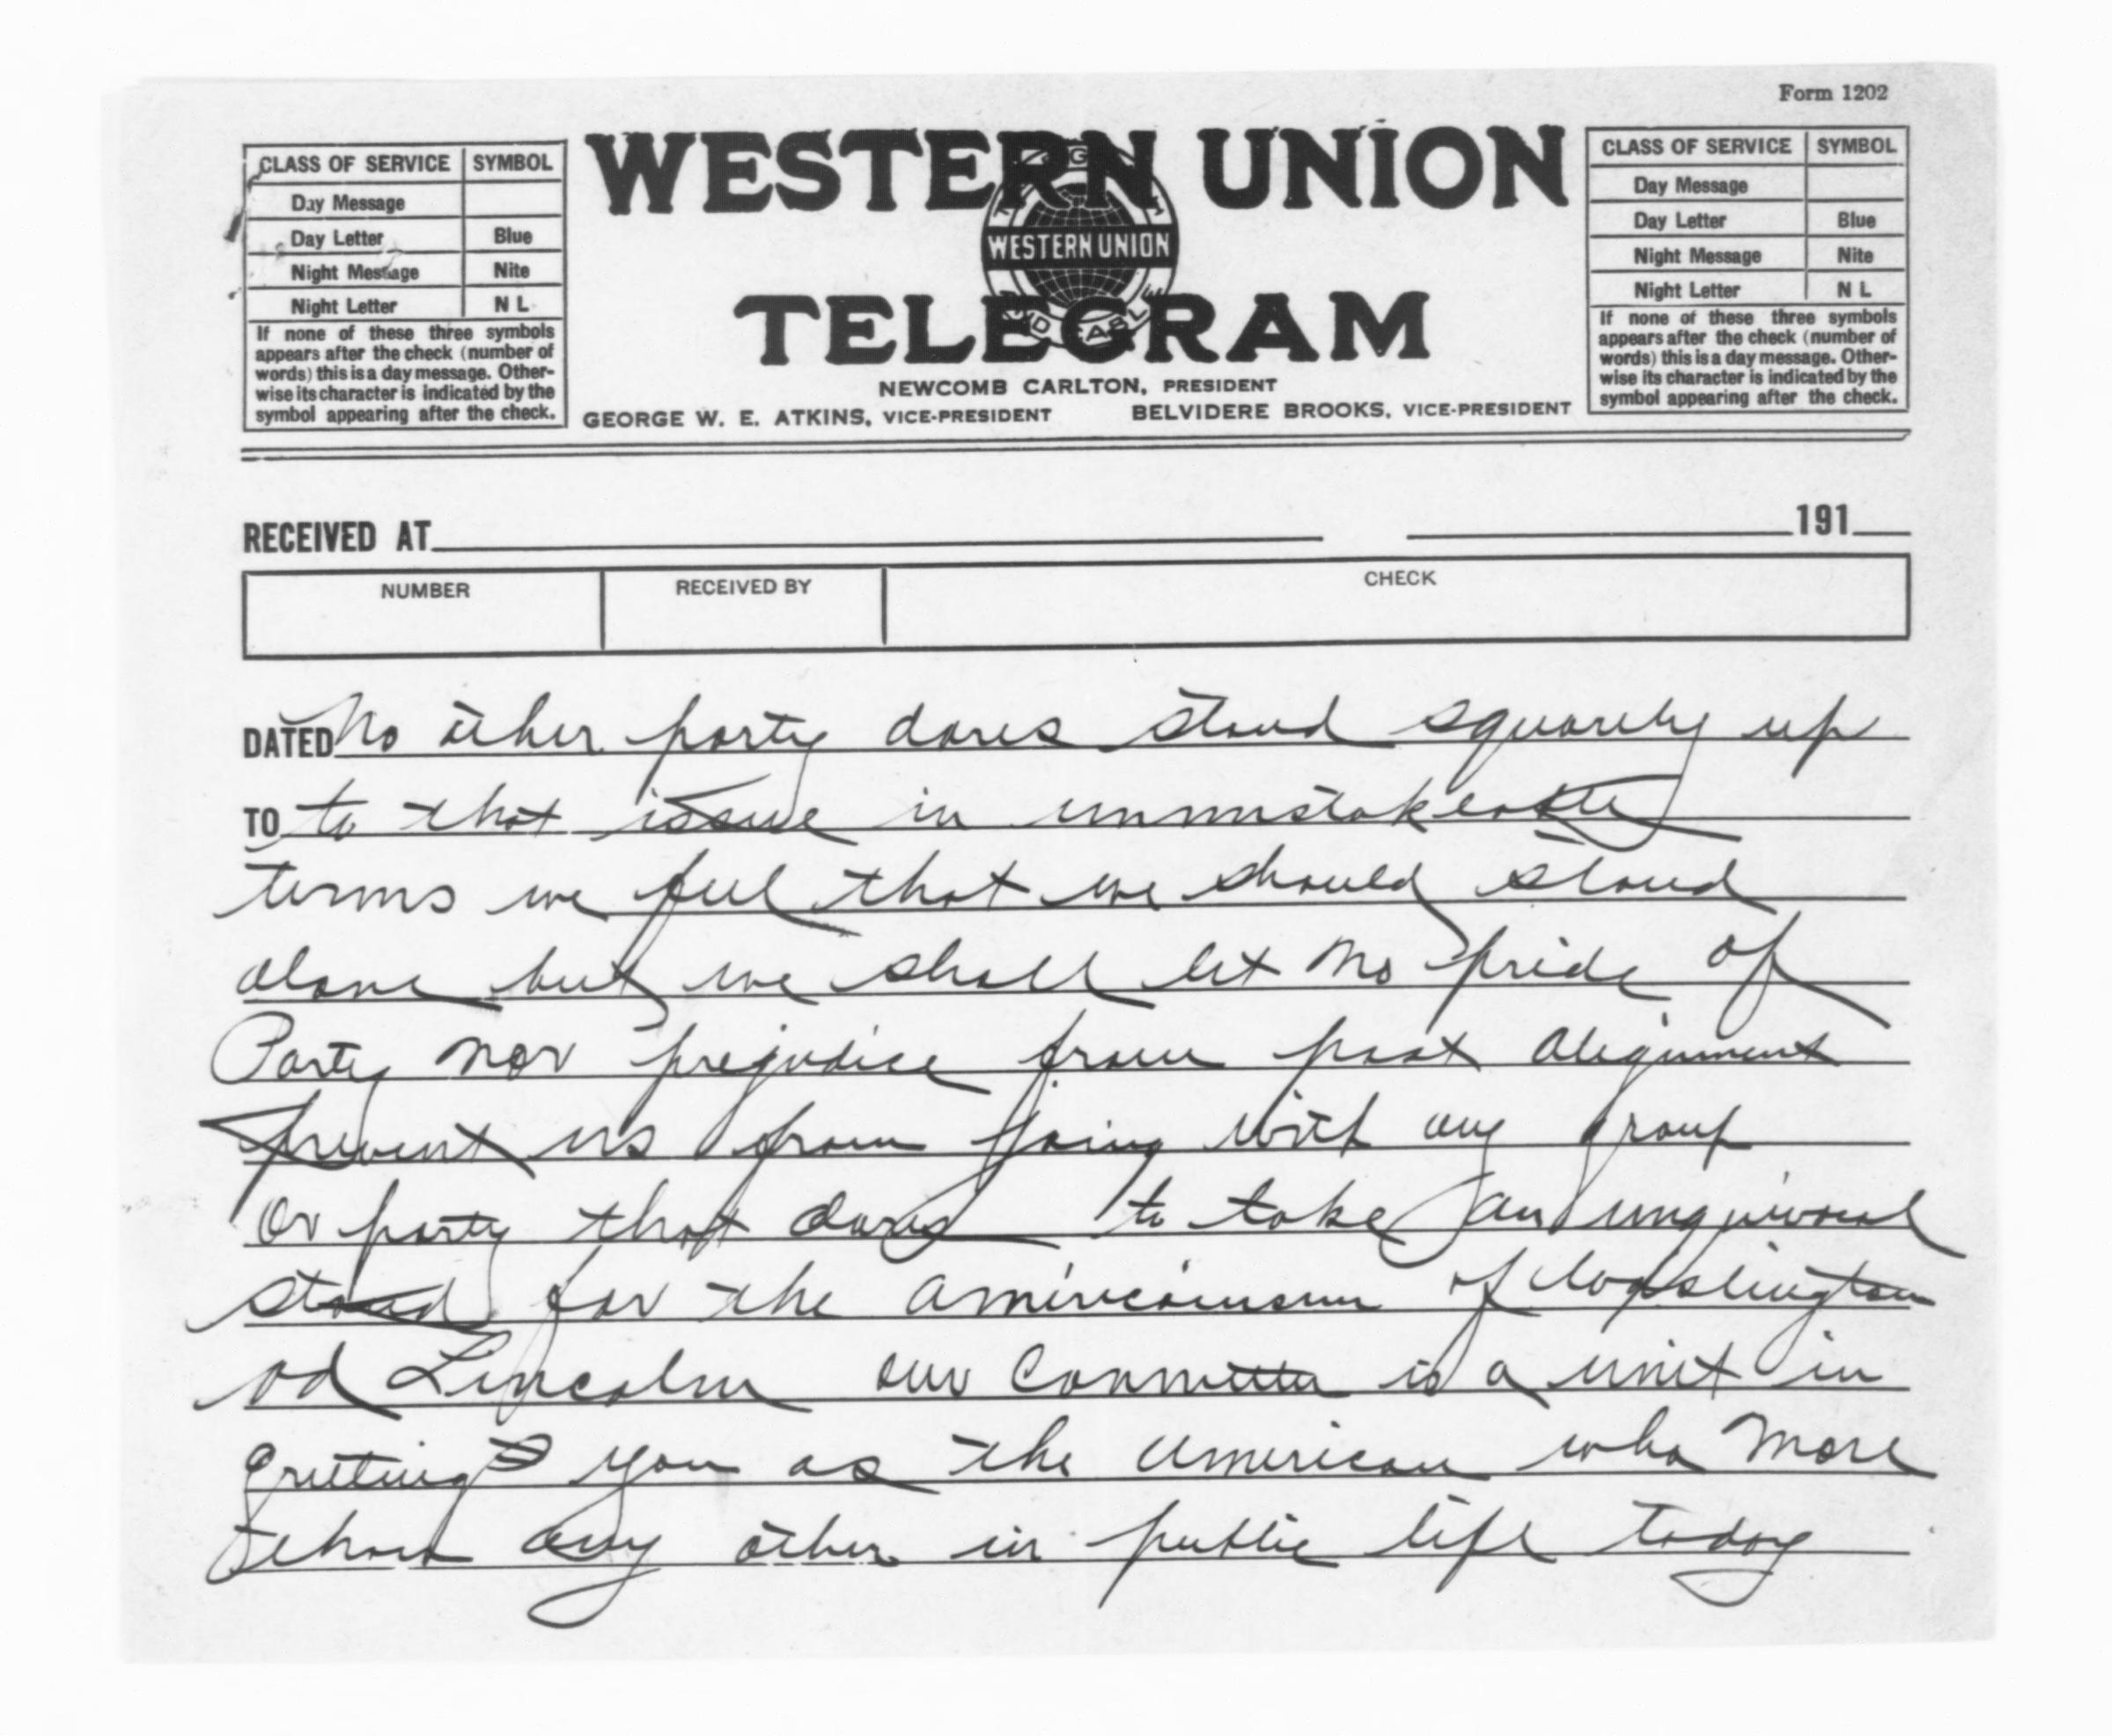 Form 1202
CLASS OF SERVICE SYMBOL
Day Message
Day Letter Blue
Night Message Nite
Night Letter N L
If none of these three symbols
appears after the check (number of
words) this is a day message. Other-
wise its character is indicated by the
symbol appearing after the check.
WESTERN UNION
WESTERN UNION
TELEGRAM
NEWCOMB CARLTON, PRESIDENT
GEORGE W. E. ATKINS, VICE-PRESIDENT BELVIDERE BROOKS, VICE-PRESIDENT
CLASS OF SERVICE SYMBOL
Day Message
Day Letter Blue
Night Message Nite
Night Letter N L
If none of these three symbols
appears after the check (number of
words) this is a day message. Other-
wise its character is indicated by the
symbol appearing after the check.
RECEIVED AT 191
NUMBER RECEIVED BY CHECK
DATED No other party dares stand squarely up
TO to that issue in
terms we feel that we should stand
alone but we shall let no pride of
Party nor prejudice from past alignment
prevent us from going with any group
or party that dares to take an
stand for the of Washington
Lincoln our Committee is a unit in
you as the American who more
than any other in public life today